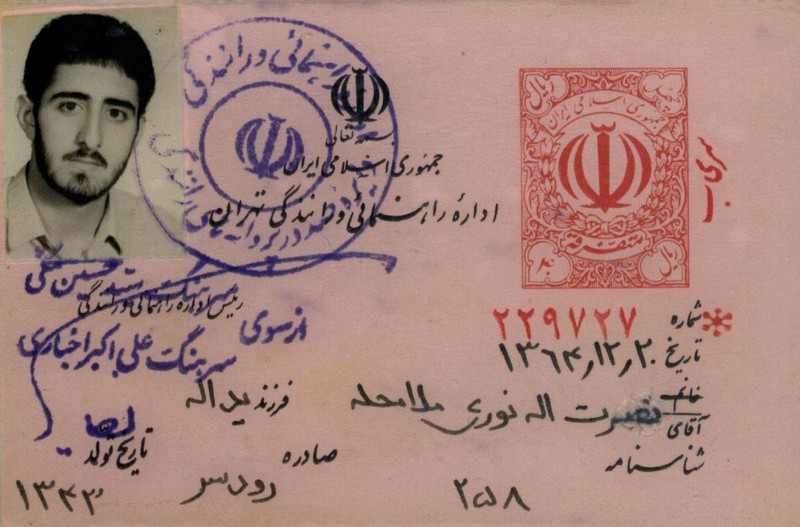 راهنمائی و رانندگی
بسمه تعالی
جمهوری اسلامی ایران
اداره راهنمائی و رانندگی تهران
جمهوری اسلامی ایران
ریال
متفرقه
۴۰
ریال
سری ب
شماره ۲۲۹۷۲۷
تاریخ ۱۳۶۴,۱۲,۲۰
خانم
آقای نصرت اله نوری ملامحله فرزند یداله
شناسنامه ۲۵۸ صادره رودسر
تاریخ تولد ۱۳۴۳
رئیس اداره راهنمائی و رانندگی
از سوی
سرهنگ علی اکبر اخباری